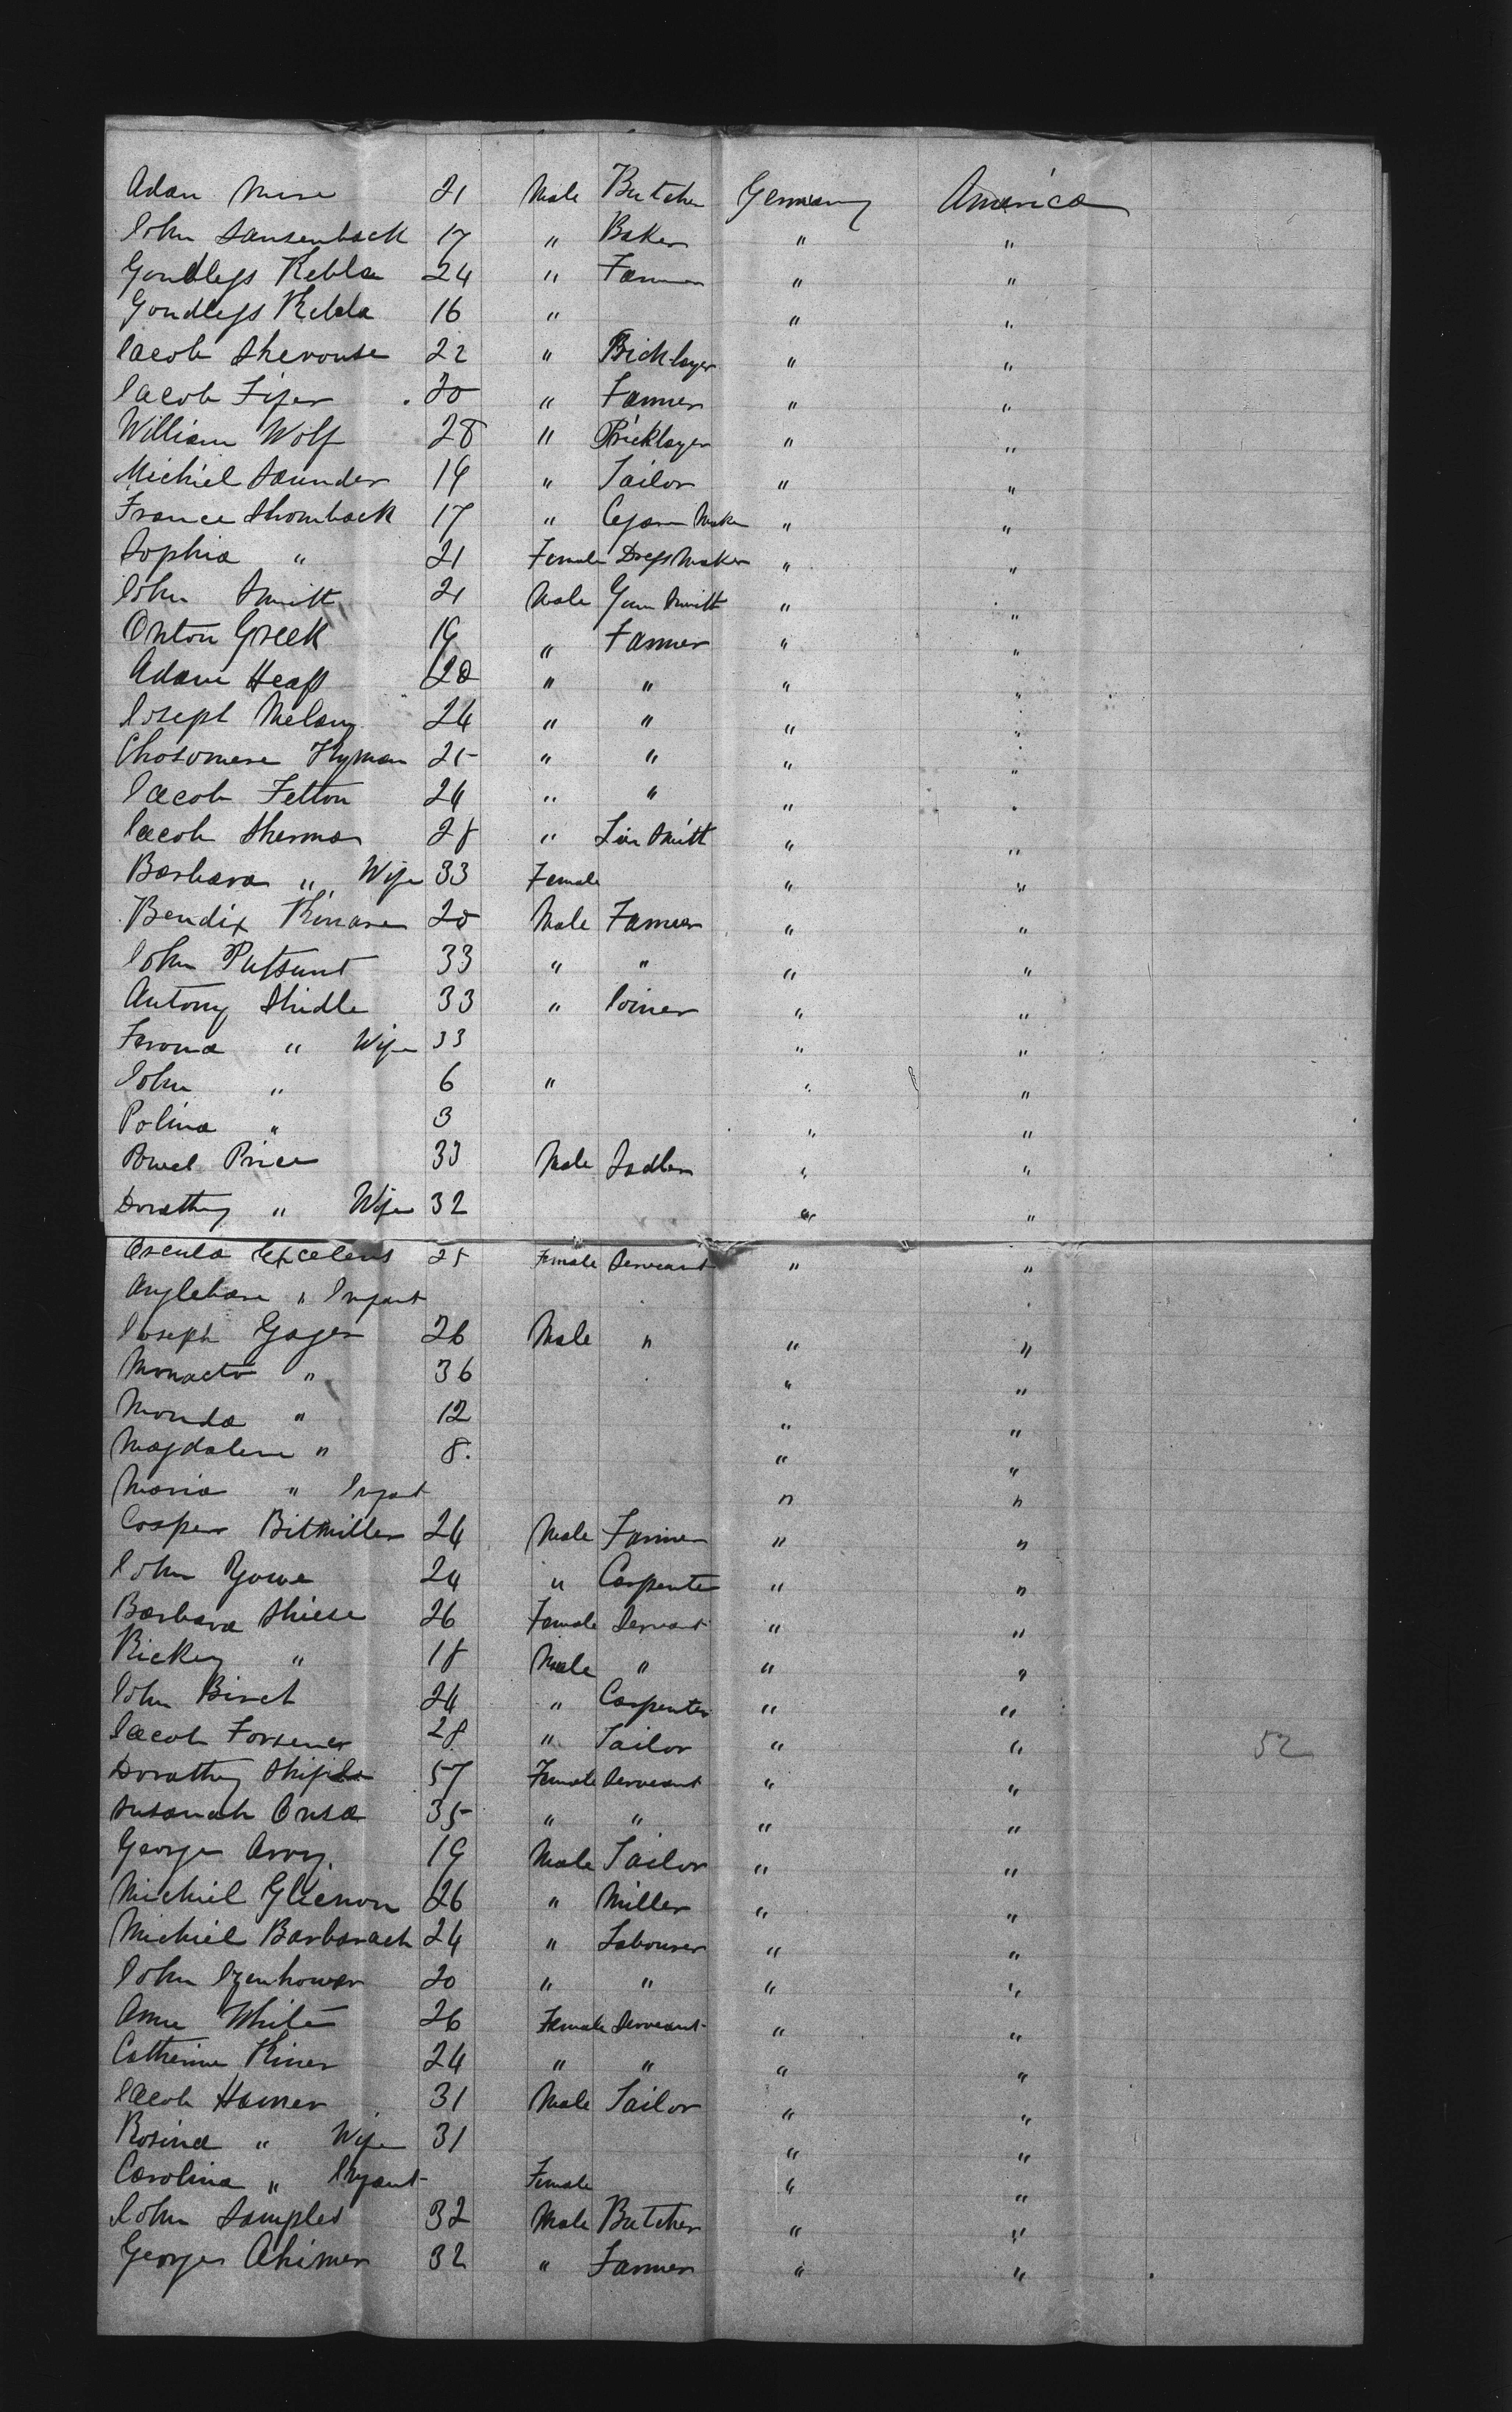 Adam Muse 21 Male Butcher Germany America
John Sausenback 17 " Baker " "
Gondless Rebla 24 " Farmer " "
Gondless Rebla 16 " " "
Jacob Sherouse 22 " Bricklayer " "
Jacob Fifer 20 " Farmer " "
William Wolf 28 " Bricklayer " "
Michiel Saunder 19 " Tailor " "
France Shomback 17 " Cegar Maker " "
Sophia " 21 Female Dress Maker " "
John Smitt 21 Male Gun Smitt " "
Onton Greek 19 " Farmer " "
Adam Heap 20 " " " "
Joseph Melony 24 " " " "
Chosomere Hyman 25 " " " "
Jacob Felton 24 " " " "
Jacob Sherman 28 " Tin Smitt " "
Barbara " Wife 33 Female " "
Bendix Rinare 20 Male Farmer " "
John Putsunt 33 " " " "
Antony Shidle 33 " Joiner " "
Frona " Wife 33 " "
John " 6 " " "
Polina " 3 " "
Powel Price 33 Male Sadler " "
Dorathy " Wife 32 " "
Oscula Excelens 25 Female Serveant " "
Anglebare " Infant
Joseph Gager 26 Male " " "
Monacto " 36 " "
Monda " 12 " "
Magdalene " 8 " "
Maria " Infant " "
Casper Bitmiller 24 Male Farmer " "
John Yowe 24 " Carpenter " "
Barbara Shiese 26 Female Serveant " "
Rickey " 18 Male " " "
John Birch 24 " Carpenter " "
Jacob Forsener 28 " Tailor " " 52
Dorathy Shifele 57 Female Serveant " "
Susanah Crusa 35 " " " "
George Avry 19 Male Tailor " "
Michiel Gleenon 26 " Miller " "
Michiel Barbarach 24 " Labourer " "
John Izenhower 20 " " " "
Anne White 26 Female Serveant " "
Catherine Riner 24 " " " "
Jacob Hamer 31 Male Tailor " "
Rosina " Wife 31 " "
Carolina " Infant Female " "
John Samples 32 Male Butcher " "
George Ahimer 32 " Farmer " "